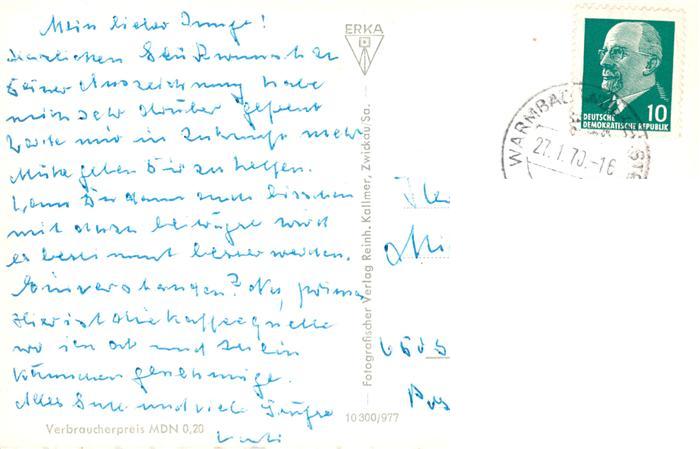 Mein lieber Junge!
Herzlichen Glückwunsch zu
Deiner Auszeichnung habe
mich sehr darüber gefreut
werde mir in Zukunft mehr
Mühe geben Dir zu helfen.
Wenn Du dann noch bisschen
mit dazu beiträgst wird
es bestimmt besser werden.
Einverstanden? Na, prima
Hier ist die Kaffeequelle
wo ich ab und zu ein
Kännchen genehmige.
Alles Gute und viele Grüße
ERKA
Fotografischer Verlag Reinh. Kallmer, Zwickau/Sa.
10 300/977
Verbraucherpreis MDN 0,20
10
DEUTSCHE
DEMOKRATISCHE REPUBLIK
WARMBAD
27.1.70.-16